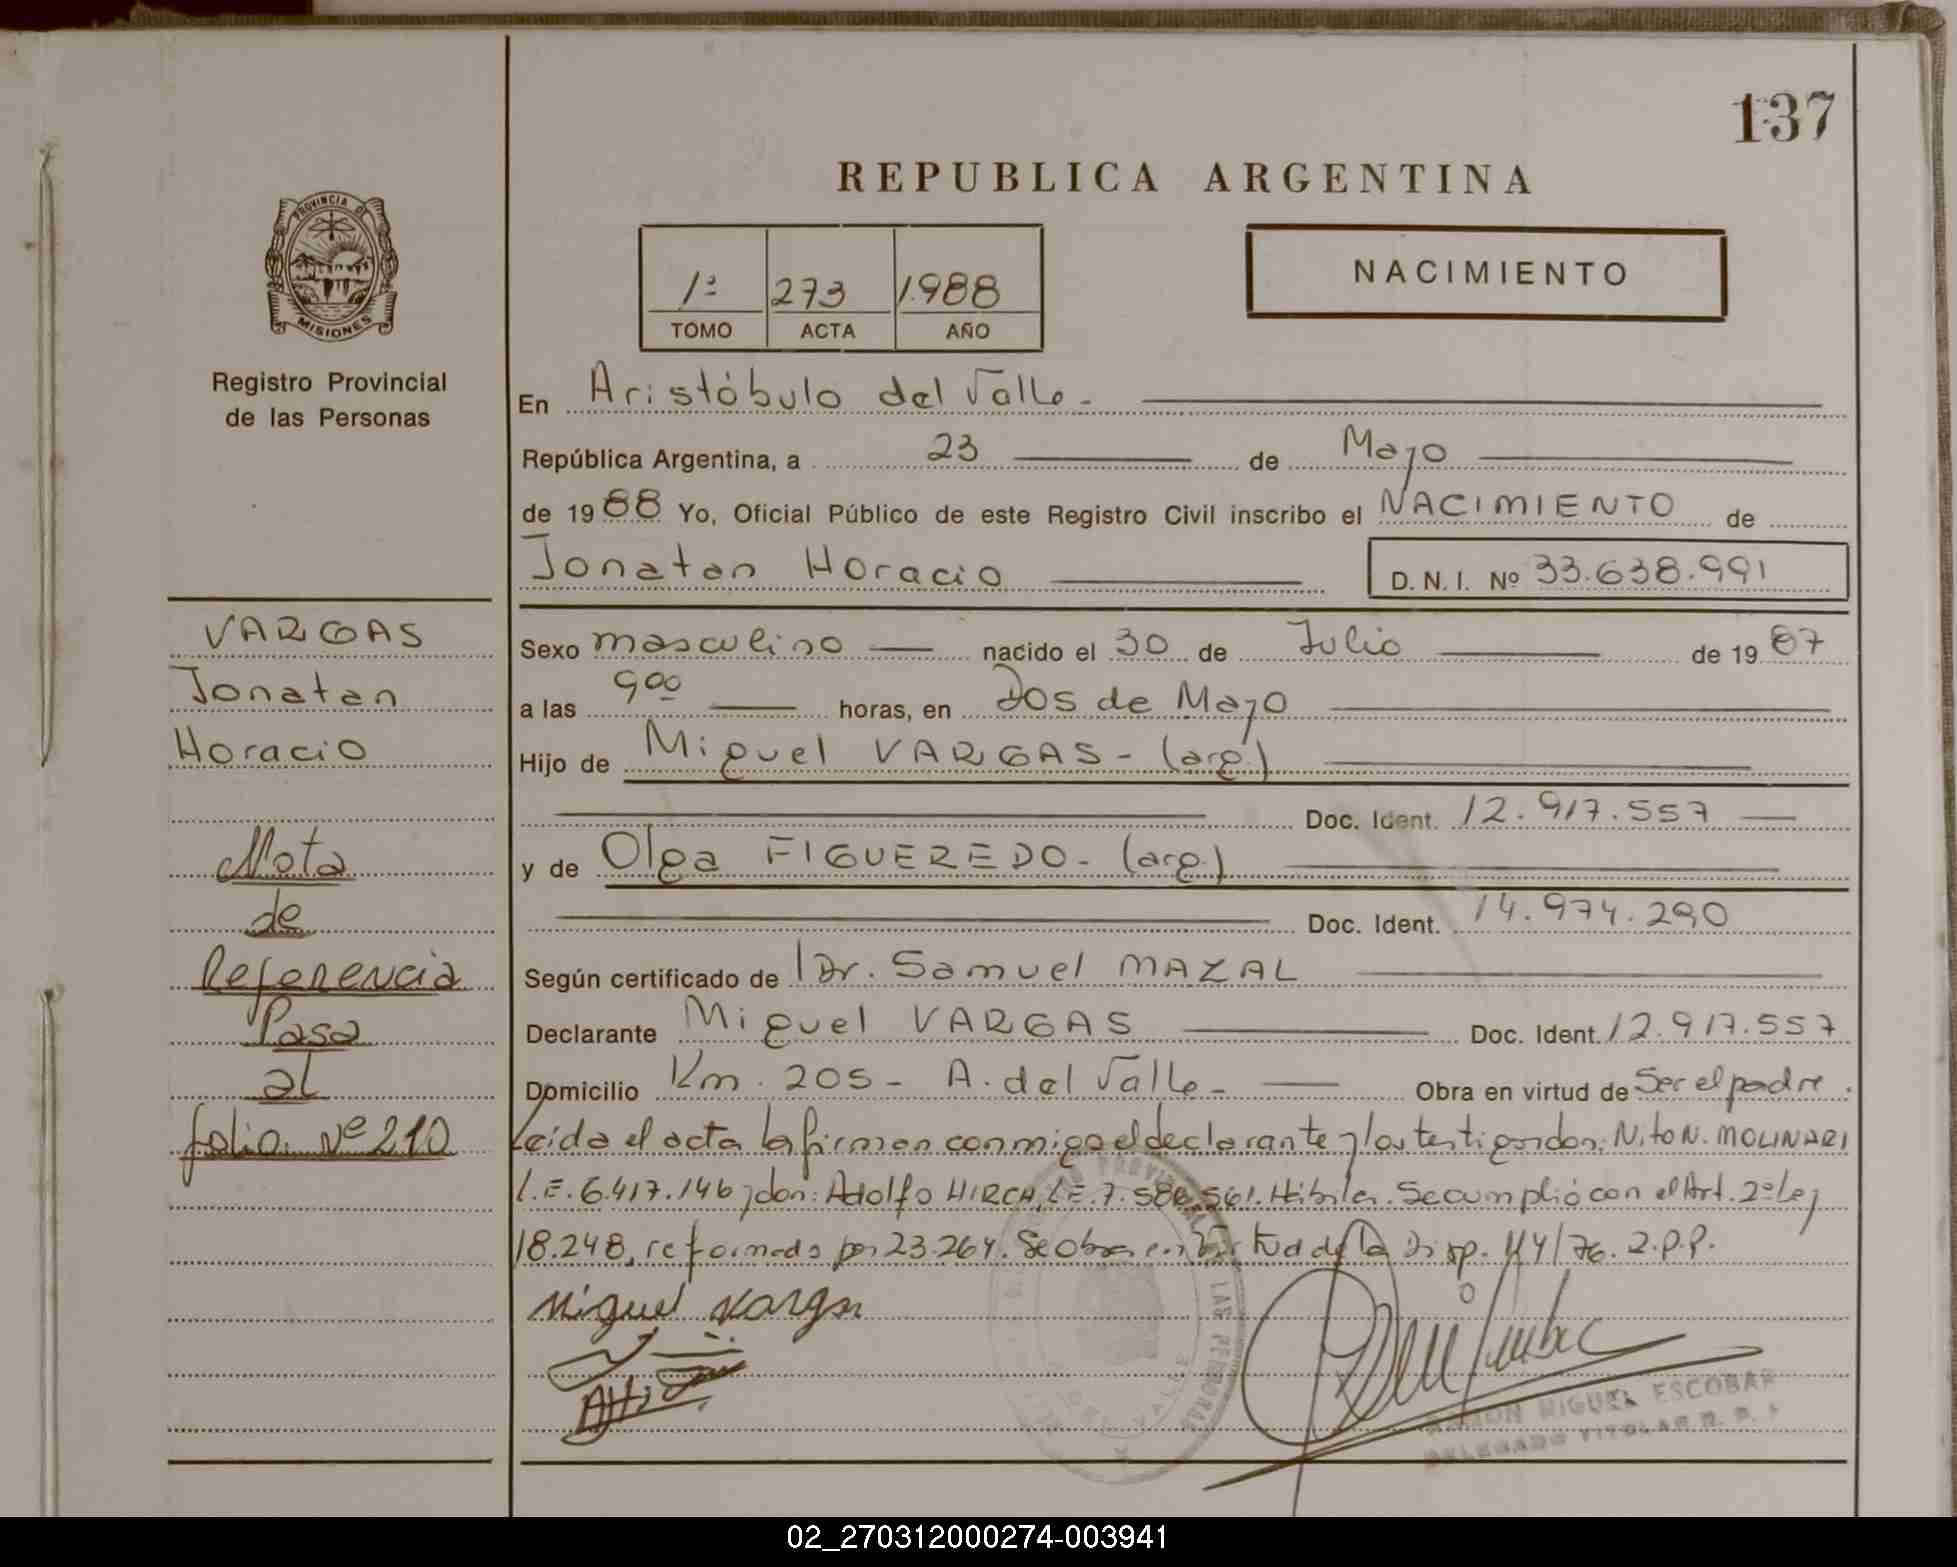 137
REPUBLICA ARGENTINA
PROVINCIA DE
MISIONES
Registro Provincial
de las Personas
1º 273 1.988
TOMO ACTA AÑO
NACIMIENTO
En Aristóbulo del Valle.-
República Argentina, a 23 de Mayo
de 1988 Yo, Oficial Público de este Registro Civil inscribo el NACIMIENTO de
Jonatan Horacio D.N.I. Nº 33.638.991
VARGAS
Jonatan
Horacio
Nota
de
Referencia
Pasa
al
folio Nº 210
Sexo masculino nacido el 30 de Julio de 1987
a las 9 00 horas, en Dos de Mayo
Hijo de Miguel VARGAS - (arg.)
Doc. Ident. 12.917.557
y de Olga FIGUEREDO - (arg.)
Doc. Ident. 14.974.290
Según certificado de Dr. Samuel MAZAL
Declarante Miguel VARGAS Doc. Ident. 12.917.557
Domicilio Km. 205 - A. del Valle - Obra en virtud de Ser el padre.
Leida el acta la firman conmigo el declarante y los testigos don: Nito N. MOLINARI
L.E. 6.417.146 y don: Adolfo HIRCH, L.E. 7.586.561. Hábiles. Se cumplió con el Art. 2º Ley
18.248, reformado por 23.264. Se obra en virtud de la Disp. 114/76. R.P.P.
Miguel Vargas
PROVINCIAL DE LAS PERSONAS
VALLE
RAMON MIGUEL ESCOBAR
DELEGADO TITULAR R. P. P.
02_270312000274-003941